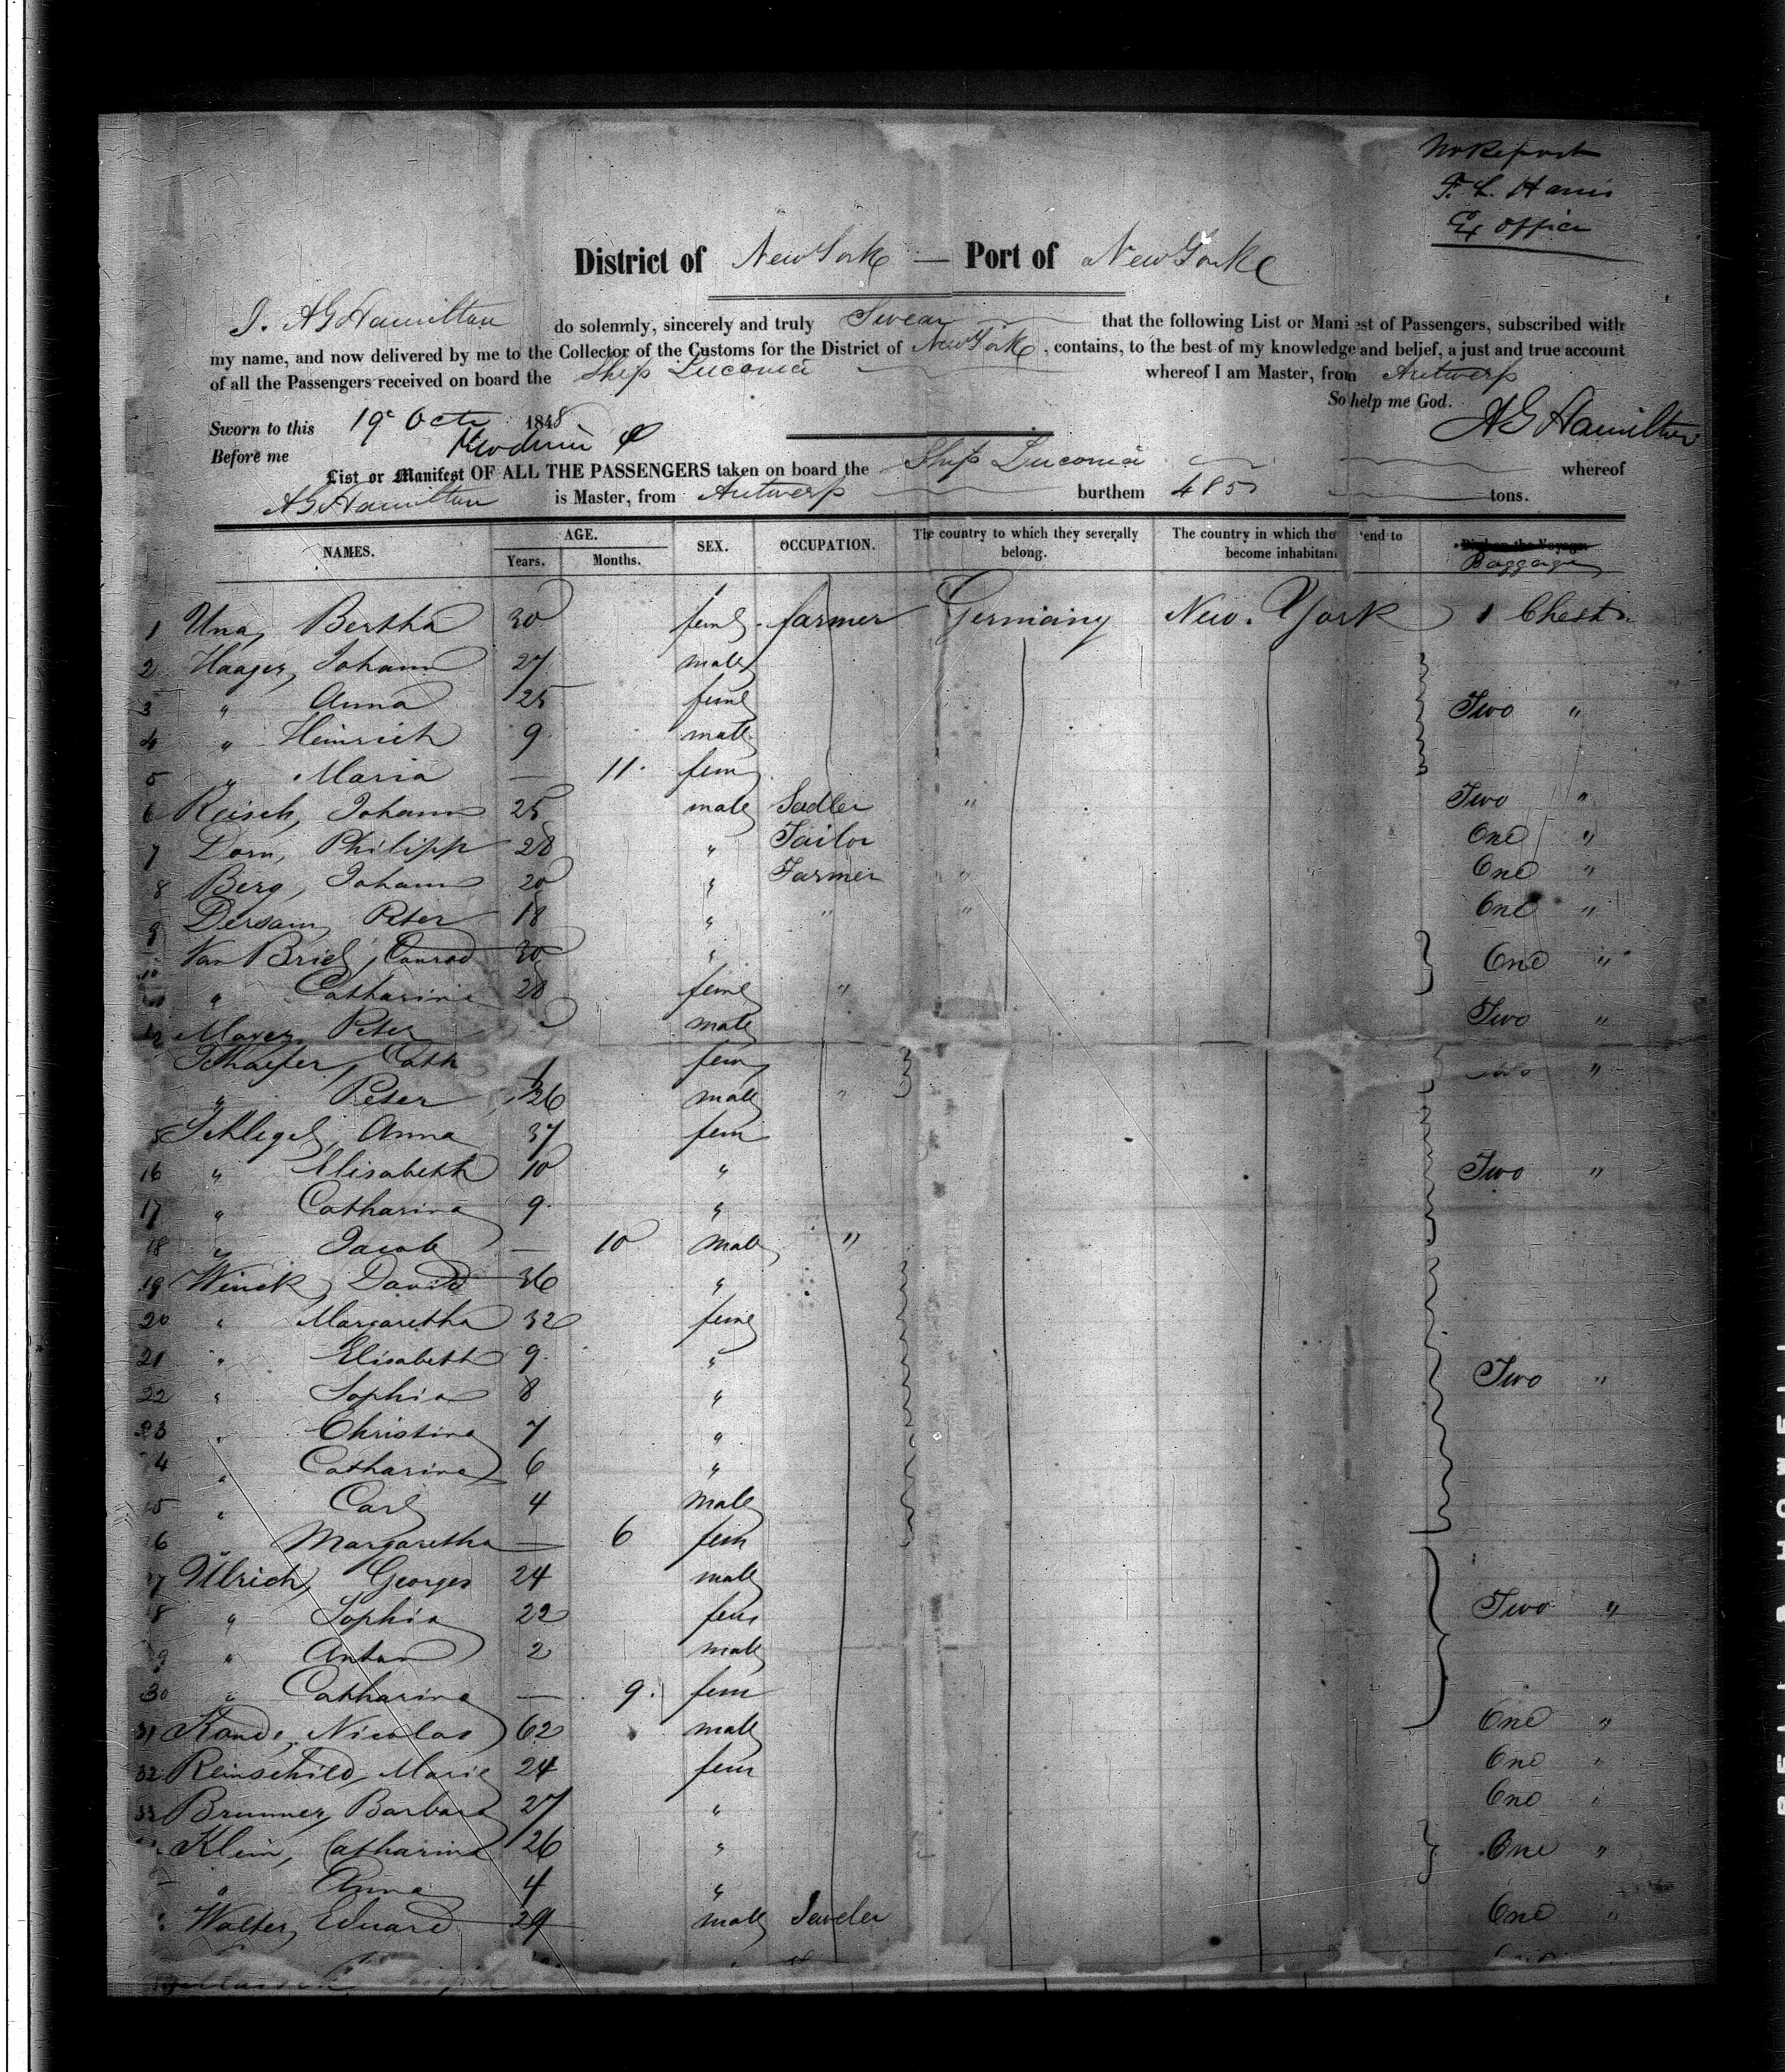 No Report
Ex Office
District of New York — Port of New York
I. AG Hamilton do solemnly, sincerely and truly Swear that the following List or Manifest of Passengers, subscribed with
my name, and now delivered by me to the Collector of the Customs for the District of New York, contains, to the best of my knowledge and belief, a just and true account
of all the Passengers received on board the Ship Luconia whereof I am Master, from Antwerp
So help me God.
Sworn to this 19 Octr 1848 AG Hamilton
Before me
List or Manifest OF ALL THE PASSENGERS taken on board the Ship Luconia whereof
AG Hamilton is Master, from Antwerp burthem 485 tons.
NAMES. AGE. Years. Months. SEX. OCCUPATION. The country to which they severally belong. The country in which the end to become inhabitan Baggage
1 Una, Bertha 30 feml farmer Germany New York 1 Chest
2 Haager, Johann 27 male
3 " Anna 25 feml Two "
4 " Heinrich 9 male
5 " Maria — 11 fem
6 Reisch, Johann 25 male Sadler " Two "
7 Dorn, Philipp 28 " Tailor One "
8 Berg, Johann 20 " Farmer " One "
9 Dersam, Peter 18 " " " One "
10 Van Briel, Conrad 30 " One "
" Catharina 28 feml "
12 Mayer, Peter male Two "
Schaefer, Cath 1 fem "
" Peter 36 male "
5 Schlegel, Anna 37 fem
16 " Elisabeth 10 " Two "
17 " Catharina 9 "
18 " Jacob — 10 male "
19 Winck, David 36 "
20 " Margaretha 32 feml
21 " Elisabeth 9 "
22 " Sophia 8 " Two "
23 " Christina 7 "
4 " Catharina 6 "
5 " Carl 4 male
6 " Margaretha — 6 fem
7 Ulrich, Georges 24 male
8 " Sophia 22 fem Two "
9 " Anton 2 male
30 " Catharina — 9 fem
31 Kande, Nicolas 62 male One "
32 Reinschild, Marie 24 fem One "
33 Brunner, Barbara 27 " One "
Klein, Catharina 26 " One "
" Anna 4 "
Walter, Eduard 29 male Jaweler One "